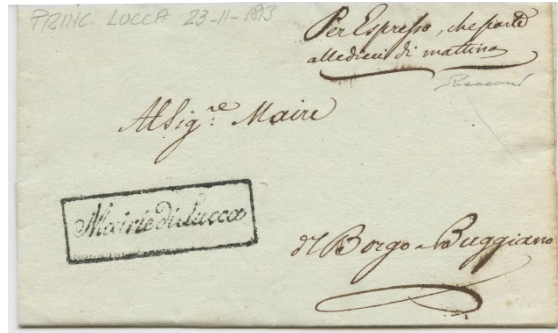 PRINC. LUCCA 23-11-1813
Per Espresso, che parte
alle dieci di mattina
Al Sig.re Maire
Mairie di Lucca
Borgo a Buggiano